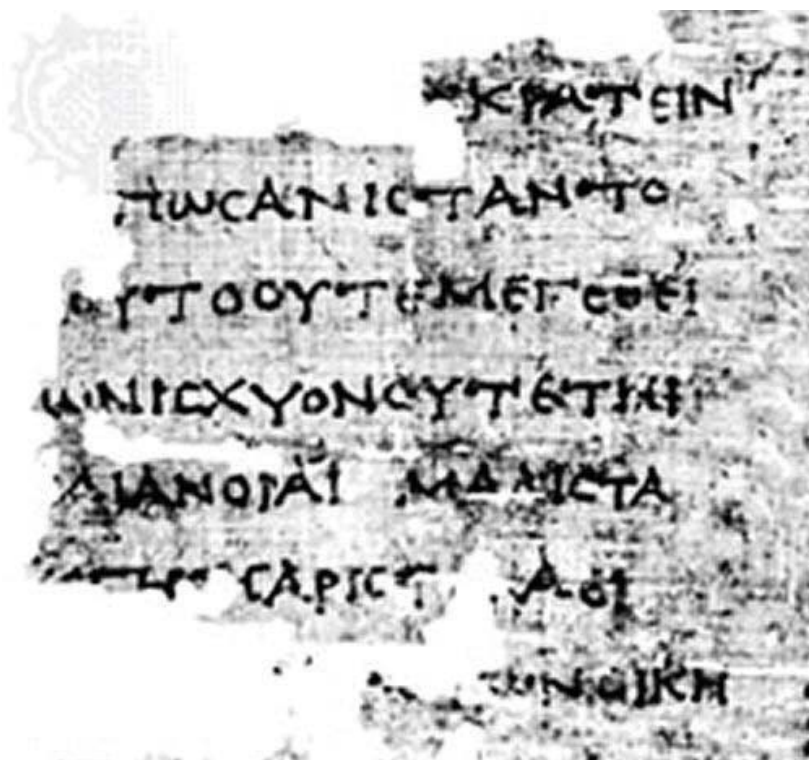 ΚΡΑΤΕΙΝ
ΠΩСΑΝΙСΤΑΝΟΤΟ
ΟΥΤΟΟΥΤΕΜΕΓΕΘΕΙ
ΩΝΙСΧΥΟΝΟΥΤΕΤΗΙ
ΔΙΑΝΟΙΑΙ ΜΑΛΙСΤΑ
СΑΡΙСΤ
ΩΝΟΙΚΗ